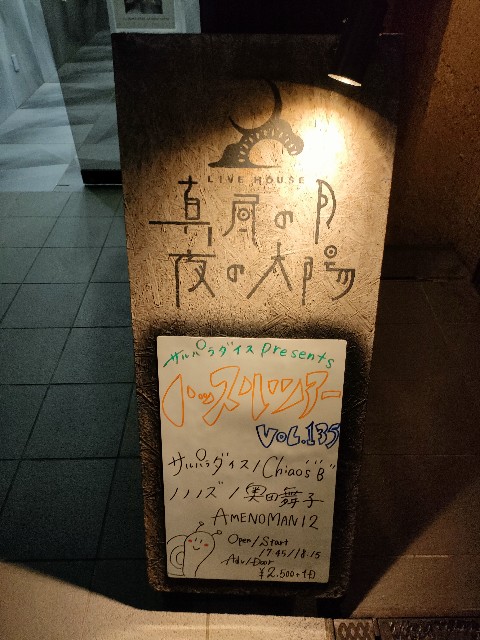 LIVE HOUSE
真昼の月
夜の太陽
サルパラダイス presents
VOL.135
サルパラダイス / Chiaos"B"
ノノズ / 奥の舞子
AMENOMAN12
Open / Start
17:45 / 18:15
Adv / Door
¥2,500+1D